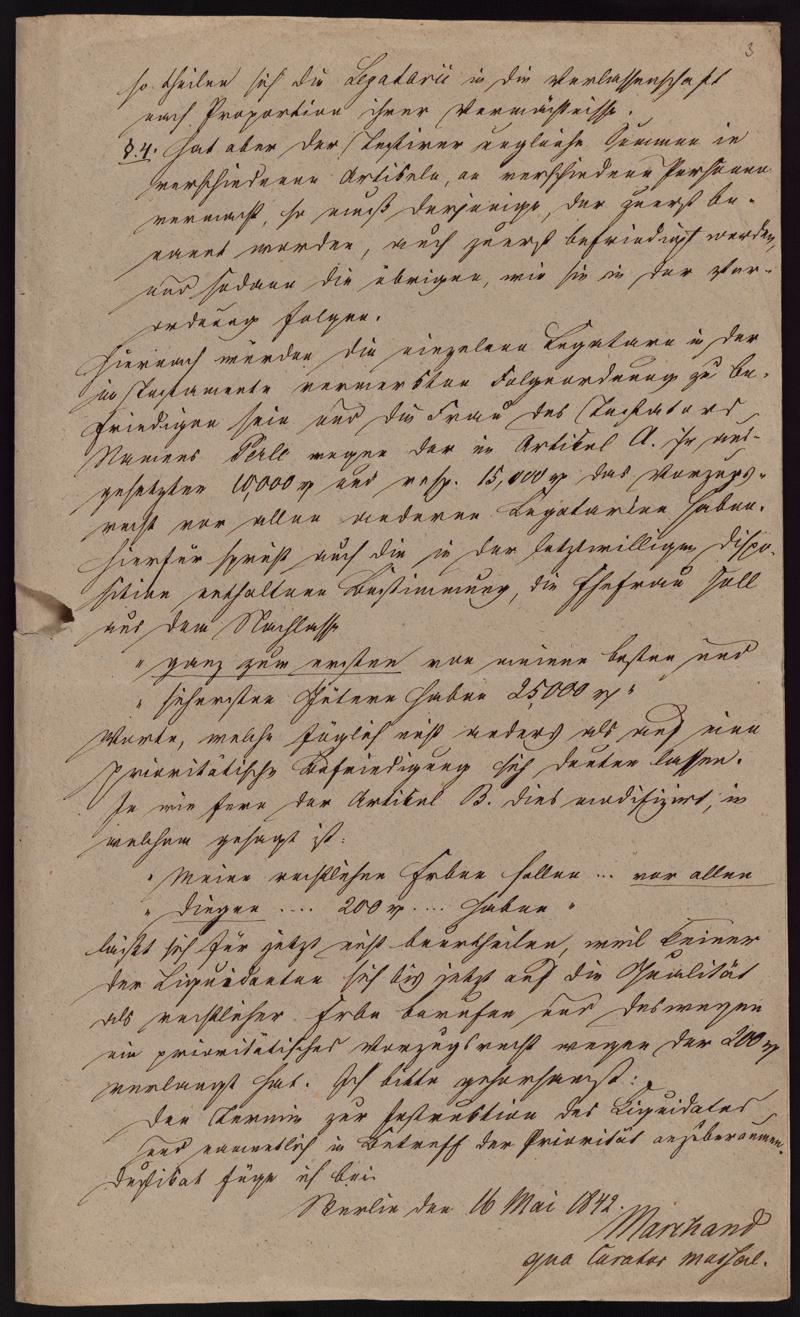 3
so theilen sich die Legatarii in die Verlassenschaft
nach Proportion ihrer Vermächtnisse.
§.4. Hat aber der Testirer ungleiche Summen in
verschiedenen Artikeln, an verschiedene Personen
vermacht, so muß derjenige, der zuerst be-
nannt worden, auch zuerst befriedigt werden,
und sodann die übrigen, wie sie in der Ver-
ordnung folgen.
Hiernach würden die einzelnen Legatare in der
im Testamente vermerkten Folgeordnung zu be-
friedigen sein und die Frau des Testators
Namens Perle wegen der im Artikel A. ihr aus-
gesetzten 10,000 rthlr und resp. 15,000 rthlr das Vorzugs-
recht vor allen anderen Legatarien haben.
Hierfür spricht auch die in der letztwilligen Dispo-
sition enthaltene Bestimmung, die Ehefrau soll
aus dem Nachlasse
" ganz zum ersten von meinen besten und
" sichersten Gütern haben 25,000 rthlr "
Worte, welche füglich nicht anders als auf eine
prioritätische Befriedigung sich deuten lassen.
In wie fern der Artikel B. dies modifizirt, in
welchem gesagt ist:
" Meine rechtlichen Erben sollen ... vor allen
" Dingen .... 200 rthlr .... haben "
läßt sich für jetzt nicht beurtheilen, weil keiner
der Liquidanten sich bis jetzt auf die Qualität
als rechtlicher Erbe berufen und deswegen
ein prioritätisches Vorzugsrecht wegen der 200 rthlr
verlangt hat. Ich bitte gehorsamst:
den Termin zur Instruktion des Liquidates
und namentlich in Betreff der Priorität anzuberaumen.
Duplikat füge ich bei.
Berlin den 16 Mai 1842.
Marchand
qua Curator massae.